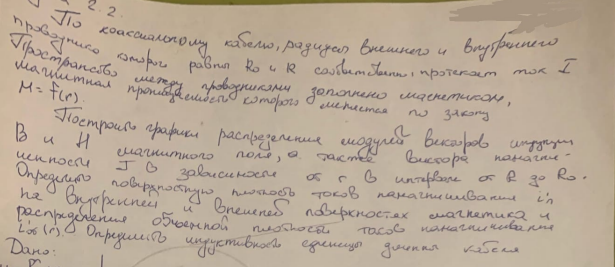 2.2.
По коаксиальному кабелю, радиусы внешнего и внутреннего
проводника которого равны R₀ и R соответственно, протекает ток I
Пространство между проводниками заполнено магнетиком,
магнитная проницаемость которого меняется по закону
M = f(r).
Построить графики распределения модулей векторов индукции
B и H магнитного поля, а также вектора намагни-
ченности I в зависимости от r в интервале от R до R₀.
Определить поверхностную плотность токов намагничивания i'п
на внутренней и внешней поверхностях магнетика и
распределения объемной плотности токов намагничивания
i'об(r). Определить индуктивность единицы длины кабеля
Дано: